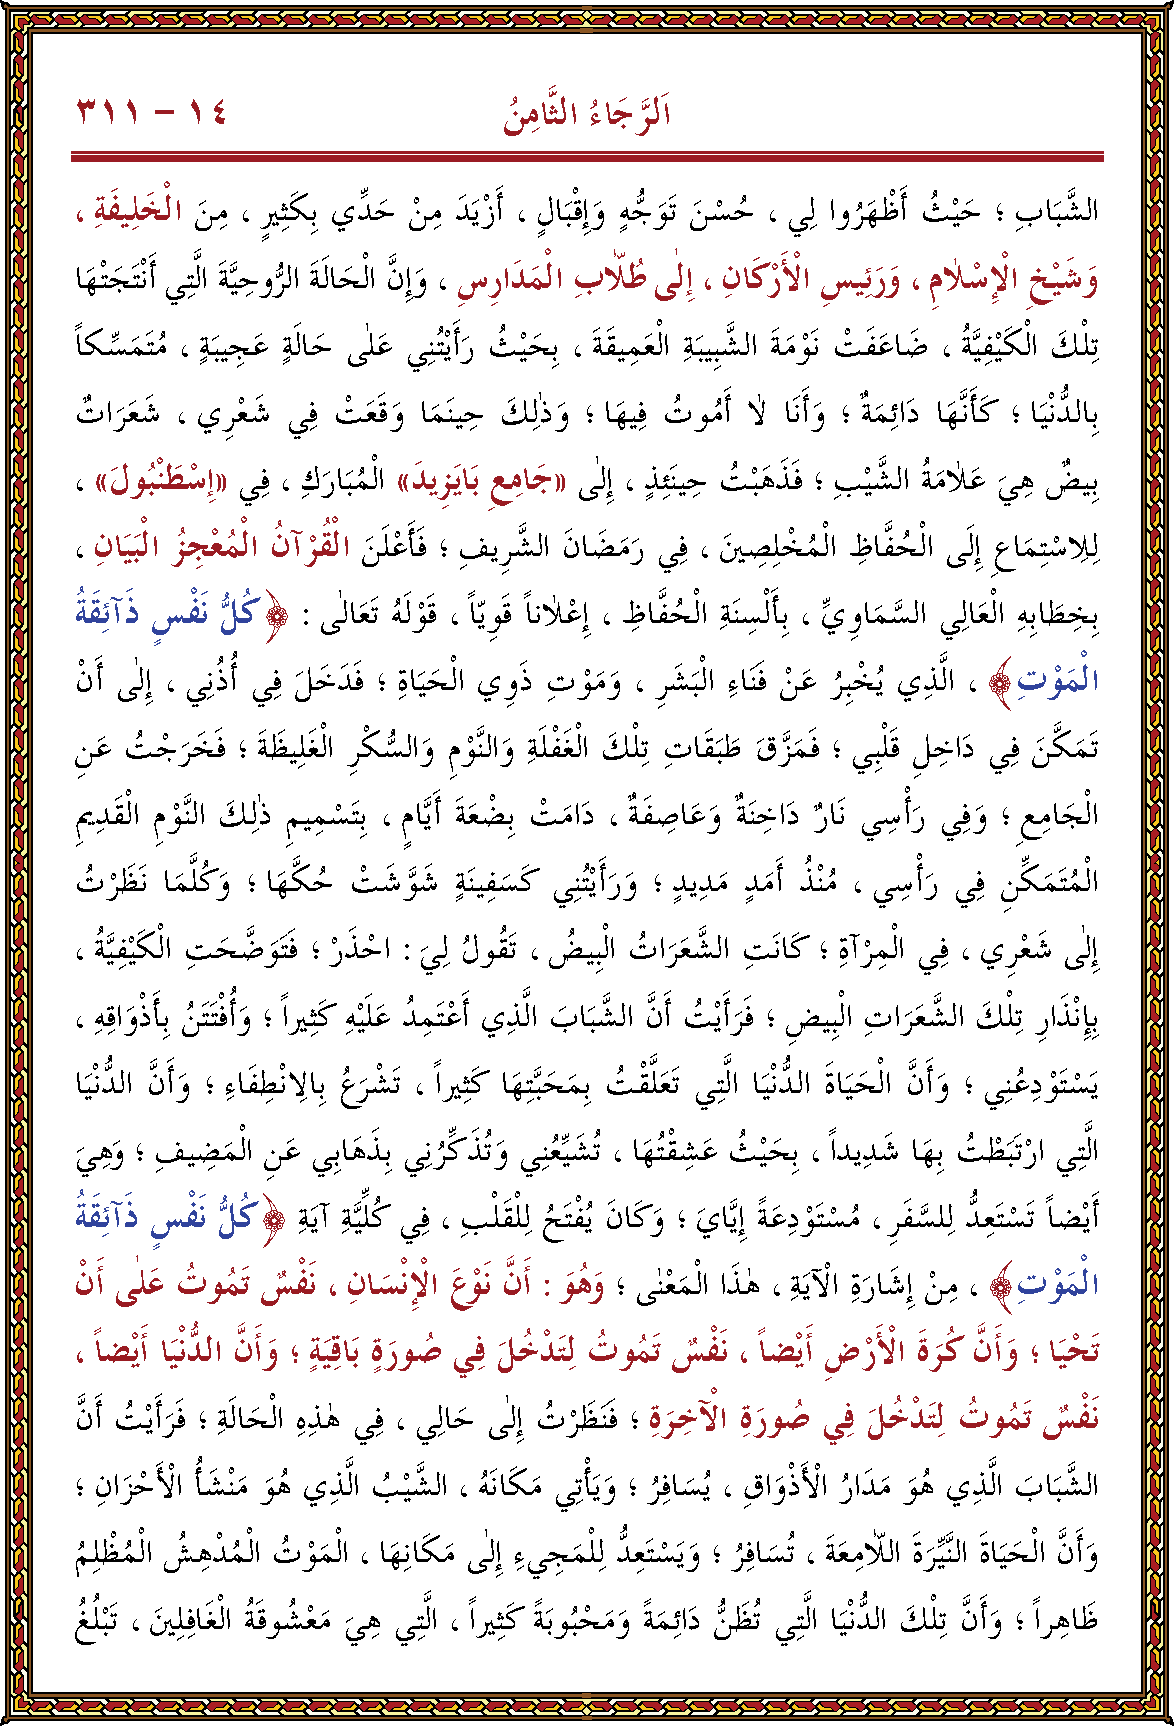 اَلرَّجَاءُ الثَّامِنُ ١٤ – ٣١١
الشَّبَابِ ؛ حَيْثُ أَظْهَرُوا لِي ، حُسْنَ تَوَجُّهٍ وَإِقْبَالٍ ، أَزْيَدَ مِنْ حَدِّي بِكَثِيرٍ ، مِنَ الْخَلِيفَةِ ،
وَشَيْخِ الْإِسْلَامِ ، وَرَئِيسِ الْأَرْكَانِ ، إِلٰى طُلَّابِ الْمَدَارِسِ ، وَإِنَّ الْحَالَةَ الرُّوحِيَّةَ الَّتِي أَنْتَجَتْهَا
تِلْكَ الْكَيْفِيَّةُ ، ضَاعَفَتْ نَوْمَةَ الشَّبِيبَةِ الْعَمِيقَةَ ، بِحَيْثُ رَأَيْتُنِي عَلٰى حَالَةٍ عَجِيبَةٍ ، مُتَمَسِّكاً
بِالدُّنْيَا ؛ كَأَنَّهَا دَائِمَةٌ ؛ وَأَنَا لَا أَمُوتُ فِيهَا ؛ وَذٰلِكَ حِينَمَا وَقَعَتْ فِي شَعْرِي ، شَعَرَاتٌ
بِيضٌ هِيَ عَلَامَةُ الشَّيْبِ ؛ فَذَهَبْتُ حِينَئِذٍ ، إِلٰى «جَامِعِ بَايَزِيدَ» الْمُبَارَكِ ، فِي «إِسْطَنْبُولَ» ،
لِلِاسْتِمَاعِ إِلَى الْحُفَّاظِ الْمُخْلِصِينَ ، فِي رَمَضَانَ الشَّرِيفِ ؛ فَأَعْلَنَ الْقُرْآنُ الْمُعْجِزُ الْبَيَانِ ،
بِخِطَابِهِ الْعَالِي السَّمَاوِيِّ ، بِأَلْسِنَةِ الْحُفَّاظِ ، إِعْلَاناً قَوِيّاً ، قَوْلَهُ تَعَالٰى : ﴿كُلُّ نَفْسٍ ذَآئِقَةُ
الْمَوْتِ﴾ ، الَّذِي يُخْبِرُ عَنْ فَنَاءِ الْبَشَرِ ، وَمَوْتِ ذَوِي الْحَيَاةِ ؛ فَدَخَلَ فِي أُذُنِي ، إِلٰى أَنْ
تَمَكَّنَ فِي دَاخِلِ قَلْبِي ؛ فَمَزَّقَ طَبَقَاتِ تِلْكَ الْغَفْلَةِ وَالنَّوْمِ وَالسُّكْرِ الْغَلِيظَةَ ؛ فَخَرَجْتُ عَنِ
الْجَامِعِ ؛ وَفِي رَأْسِي نَارٌ دَاخِنَةٌ وَعَاصِفَةٌ ، دَامَتْ بِضْعَةَ أَيَّامٍ ، بِتَسْمِيمِ ذٰلِكَ النَّوْمِ الْقَدِيمِ
الْمُتَمَكِّنِ فِي رَأْسِي ، مُنْذُ أَمَدٍ مَدِيدٍ ؛ وَرَأَيْتُنِي كَسَفِينَةٍ شَوَّشَتْ حُكَّهَا ؛ وَكُلَّمَا نَظَرْتُ
إِلٰى شَعْرِي ، فِي الْمِرْآةِ ؛ كَانَتِ الشَّعَرَاتُ الْبِيضُ ، تَقُولُ لِيَ : احْذَرْ ؛ فَتَوَضَّحَتِ الْكَيْفِيَّةُ ،
بِإِنْذَارِ تِلْكَ الشَّعَرَاتِ الْبِيضِ ؛ فَرَأَيْتُ أَنَّ الشَّبَابَ الَّذِي أَعْتَمِدُ عَلَيْهِ كَثِيراً ؛ وَأُفْتَتَنُ بِأَذْوَاقِهِ ،
يَسْتَوْدِعُنِي ؛ وَأَنَّ الْحَيَاةَ الدُّنْيَا الَّتِي تَعَلَّقْتُ بِمَحَبَّتِهَا كَثِيراً ، تَشْرَعُ بِالِانْطِفَاءِ ؛ وَأَنَّ الدُّنْيَا
الَّتِي ارْتَبَطْتُ بِهَا شَدِيداً ، بِحَيْثُ عَشِقْتُهَا ، تُشَيِّعُنِي وَتُذَكِّرُنِي بِذَهَابِي عَنِ الْمَضِيفِ ؛ وَهِيَ
أَيْضاً تَسْتَعِدُّ لِلسَّفَرِ ، مُسْتَوْدِعَةً إِيَّايَ ؛ وَكَانَ يُفْتَحُ لِلْقَلْبِ ، فِي كُلِّيَّةِ آيَةِ ﴿كُلُّ نَفْسٍ ذَآئِقَةُ
الْمَوْتِ﴾ ، مِنْ إِشَارَةِ الْآيَةِ ، هٰذَا الْمَعْنٰى ؛ وَهُوَ : أَنَّ نَوْعَ الْإِنْسَانِ ، نَفْسٌ تَمُوتُ عَلٰى أَنْ
تَحْيَا ؛ وَأَنَّ كُرَةَ الْأَرْضِ أَيْضاً ، نَفْسٌ تَمُوتُ لِتَدْخُلَ فِي صُورَةٍ بَاقِيَةٍ ؛ وَأَنَّ الدُّنْيَا أَيْضاً ،
نَفْسٌ تَمُوتُ لِتَدْخُلَ فِي صُورَةِ الْآخِرَةِ ؛ فَنَظَرْتُ إِلٰى حَالِي ، فِي هٰذِهِ الْحَالَةِ ؛ فَرَأَيْتُ أَنَّ
الشَّبَابَ الَّذِي هُوَ مَدَارُ الْأَذْوَاقِ ، يُسَافِرُ ؛ وَيَأْتِي مَكَانَهُ ، الشَّيْبُ الَّذِي هُوَ مَنْشَأُ الْأَحْزَانِ ؛
وَأَنَّ الْحَيَاةَ النَّيِّرَةَ اللَّامِعَةَ ، تُسَافِرُ ؛ وَيَسْتَعِدُّ لِلْمَجِيءِ إِلٰى مَكَانِهَا ، الْمَوْتُ الْمُدْهِشُ الْمُظْلِمُ
ظَاهِراً ؛ وَأَنَّ تِلْكَ الدُّنْيَا الَّتِي تُظَنُّ دَائِمَةً وَمَحْبُوبَةً كَثِيراً ، الَّتِي هِيَ مَعْشُوقَةُ الْغَافِلِينَ ، تَبْلُغُ